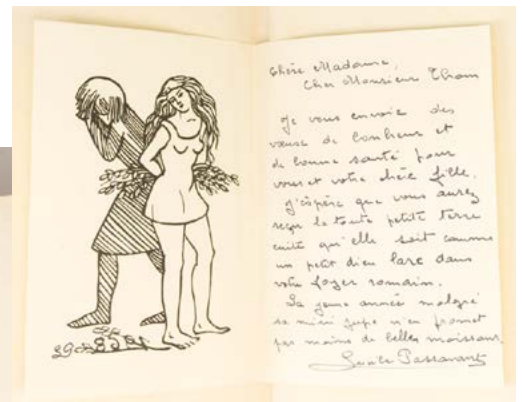 Chère Madame,
Cher Monsieur Thom
Je vous envoie des
vœux de bonheur et
de bonne santé pour
vous et votre chère fille.
J'espère que vous aurez
reçu la toute petite terre
cuite qu'elle soit comme
un petit dieu lare dans
votre foyer romain.
La jeune année malgré
sa mini jupe n'en promet
pas moins de belles moissons.
Lucile Passavant